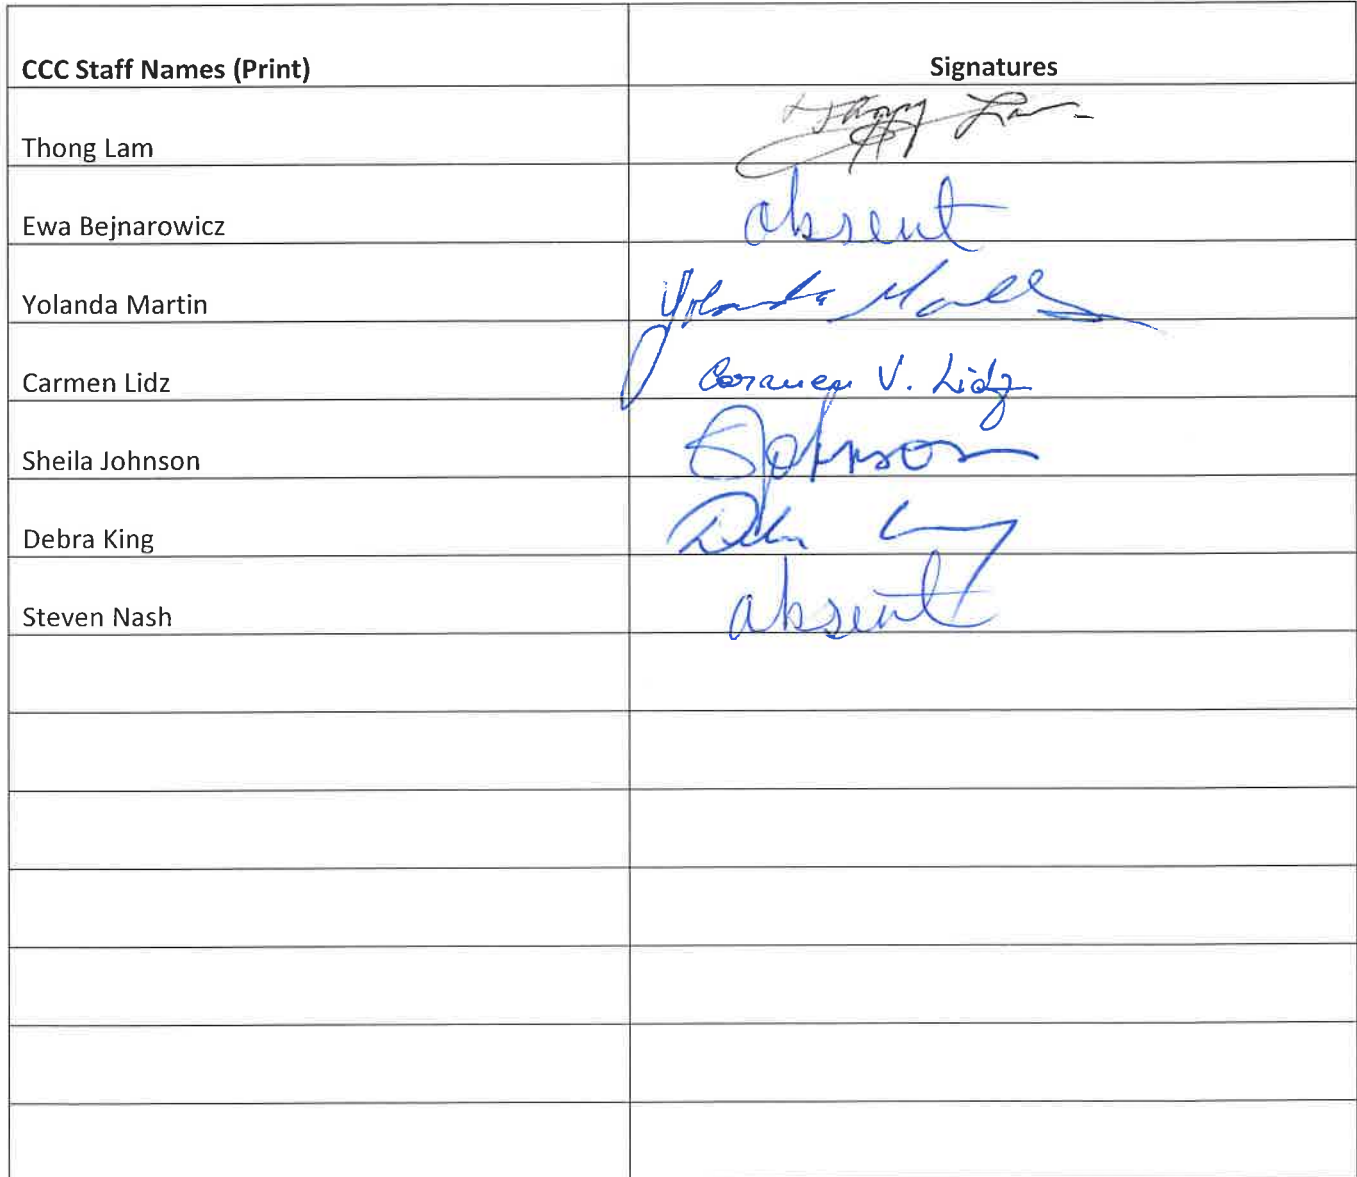 CCC Staff Names (Print) Signatures
Thong Lam
Ewa Bejnarowicz absent
Yolanda Martin Yolanda
Carmen Lidz Carmen V. Lidz
Sheila Johnson SJohnson
Debra King
Steven Nash absent